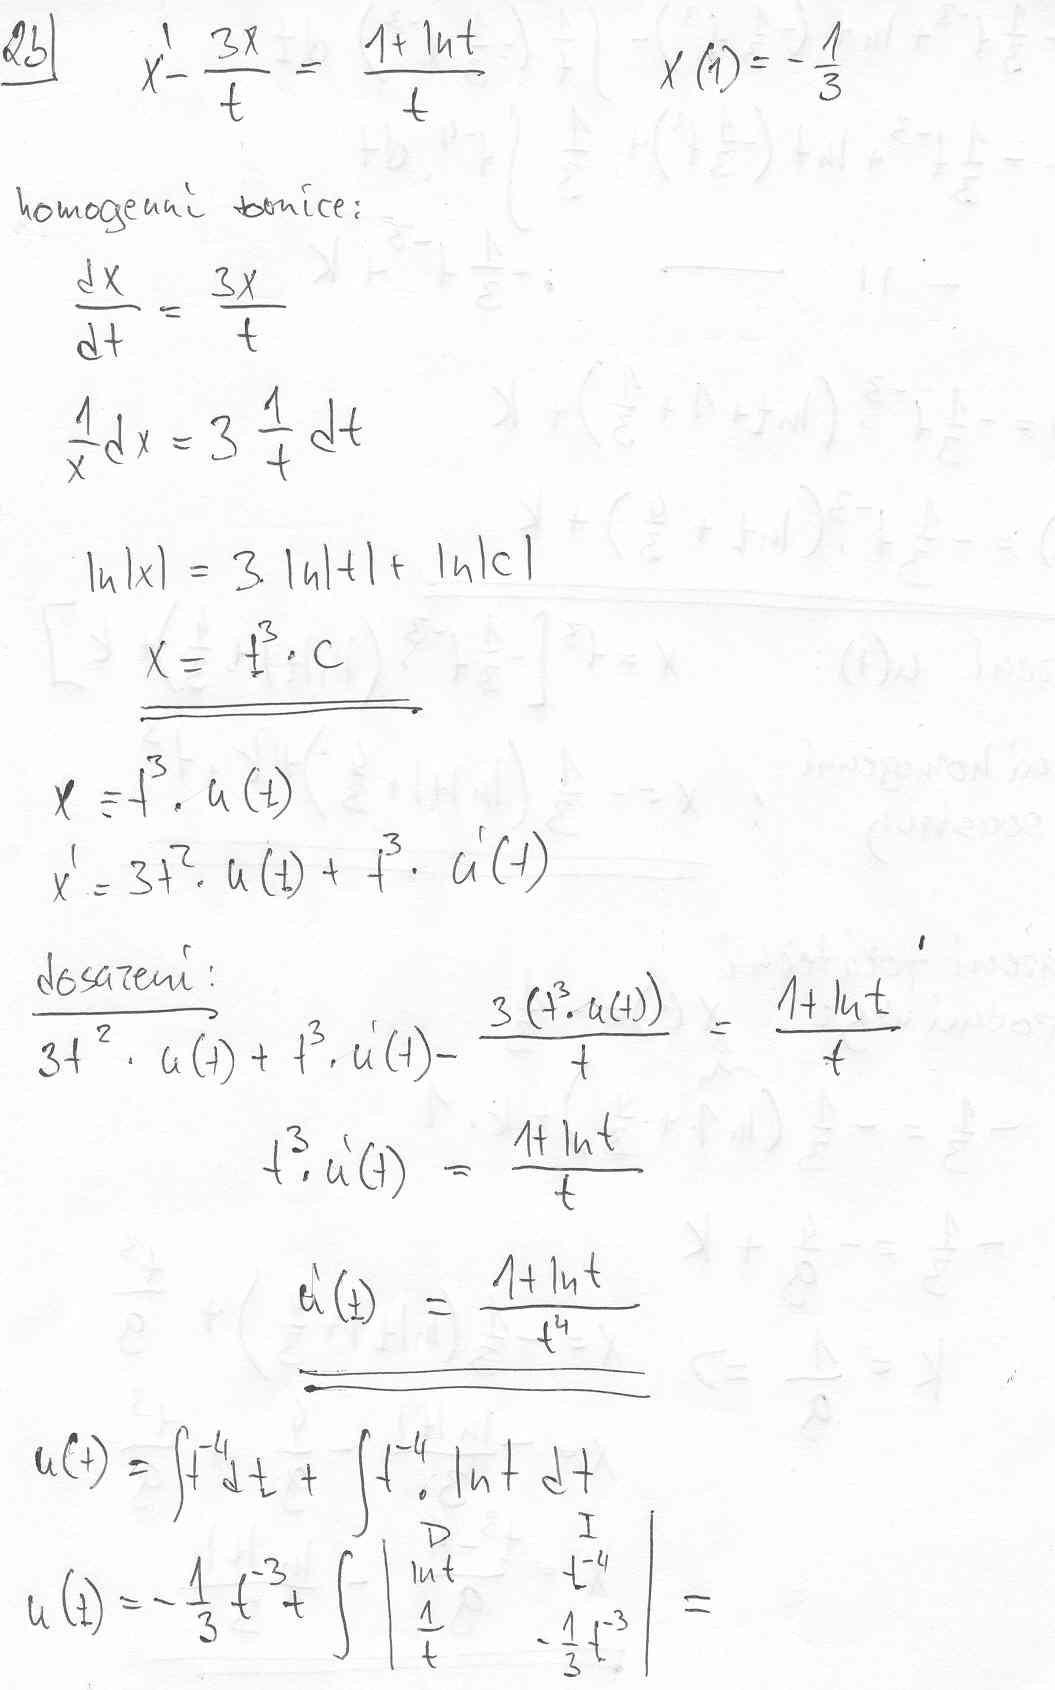 2b) x' - 3x/t = (1 + ln t)/t x(1) = -1/3
homogenní rovnice:
dx/dt = 3x/t
1/x dx = 3 1/t dt
ln|x| = 3. ln|t| + ln|c|
x = t³ · c
x = t³ · u(t)
x' = 3t² · u(t) + t³ · u'(t)
dosazení:
3t² · u(t) + t³ · u'(t) - 3(t³ · u(t))/t = (1 + ln t)/t
t³ · u'(t) = (1 + ln t)/t
u'(t) = (1 + ln t)/t⁴
u(t) = ∫ t⁻⁴ dt + ∫ t⁻⁴ · ln t dt
D I
u(t) = -1/3 t⁻³ + ∫ | ln t t⁻⁴ | =
1/t -1/3 t⁻³